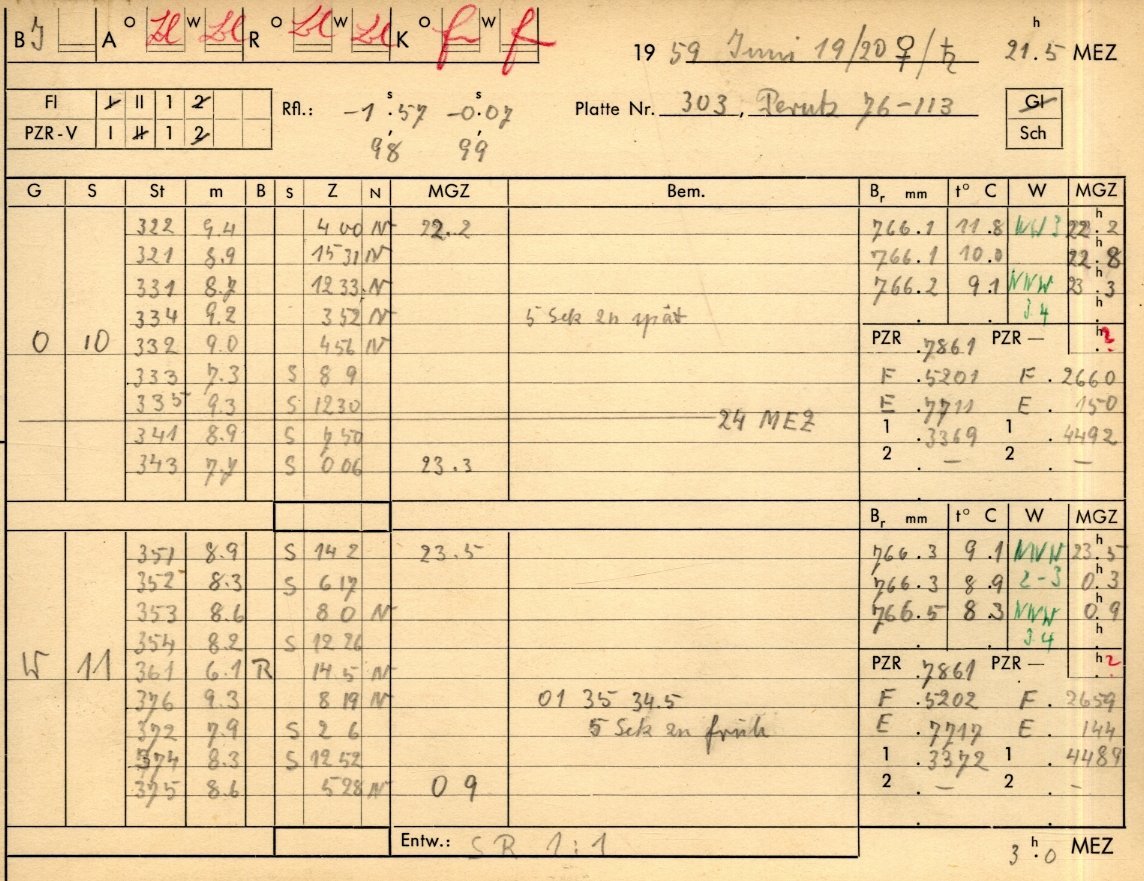 B J A O Zl W Zl R O Zl W Zl K O f W f 19 59 Juni 19/20 ♀/♄ 21.5 h MEZ
FI I II 1 2 Rfl.: -1.57 s -0.07 s Platte Nr. 303, Perutz 76-113 Gl
PZR-V I II 1 2 98 99 Sch
G S St m B S Z N MGZ Bem. Br mm t° C W MGZ
322 9.4 4 00 N 22.2 766.1 11.8 22.2 h
321 8.9 15 31 N 766.1 10.0 22.8 h
331 8.7 12 33 N 766.2 9.1 NNW 23.3 h
334 9.2 3 52 N 5 Sek zu spät 3.4 h
O 10 332 9.0 4 56 N PZR .7861 PZR — h 2
333 7.3 S 8 9 F .5201 F . 2660
335 9.3 S 12 30 E .7711 E . 150
24 MEZ
341 8.9 S 7 50 1 .3369 1 4492
343 7.7 S 0 06 23.3 2 — 2 —
Br mm t° C W MGZ
351 8.9 S 14 2 23.5 766.3 9.1 NNW 23.5 h
352 8.3 S 6 17 766.3 8.9 2-3 0.3 h
353 8.6 8 0 N 766.5 8.3 NNW 0.9 h
354 8.2 S 12 26 3.4 h
W 11 361 6.1 R 14.5 N PZR .7861 PZR — h 2
376 9.3 8 19 N 01 35 34.5 F .5202 F . 2659
372 7.9 S 2 6 5 Sek zu früh E .7717 E . 144
374 8.3 S 12 52 1 .3372 1 4489
375 8.6 5 28 N 0 9 2 — 2 -
Entw.: SR 1:1 3.0 h MEZ